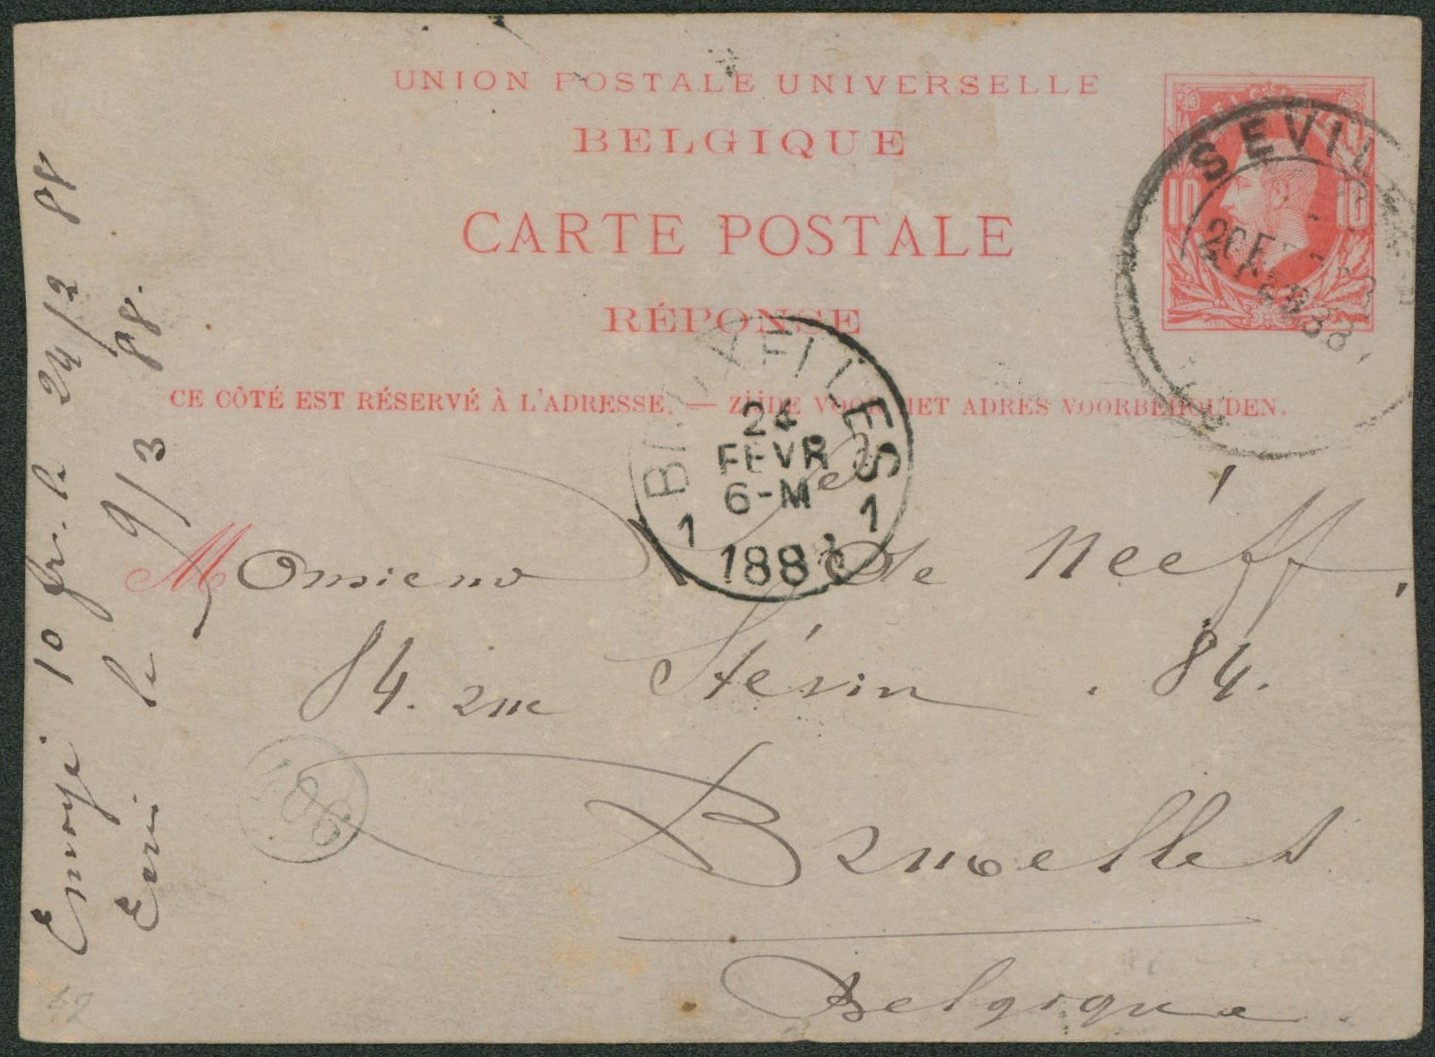 UNION POSTALE UNIVERSELLE
BELGIQUE
CARTE POSTALE
RÉPONSE
CE CÔTÉ EST RÉSERVÉ À L'ADRESSE. — ZIJDE VOOR HET ADRES VOORBEHOUDEN.
10 10
SEVIL
BRUXELLES
24
FEVR
6-M
1 1
188
Monsieur de Neéff,
84. rue Stévin . 84.
Bruxelles
Belgique.
Envoyé 10 fr. le 24/2 88
Ecrit le 9/3 88.